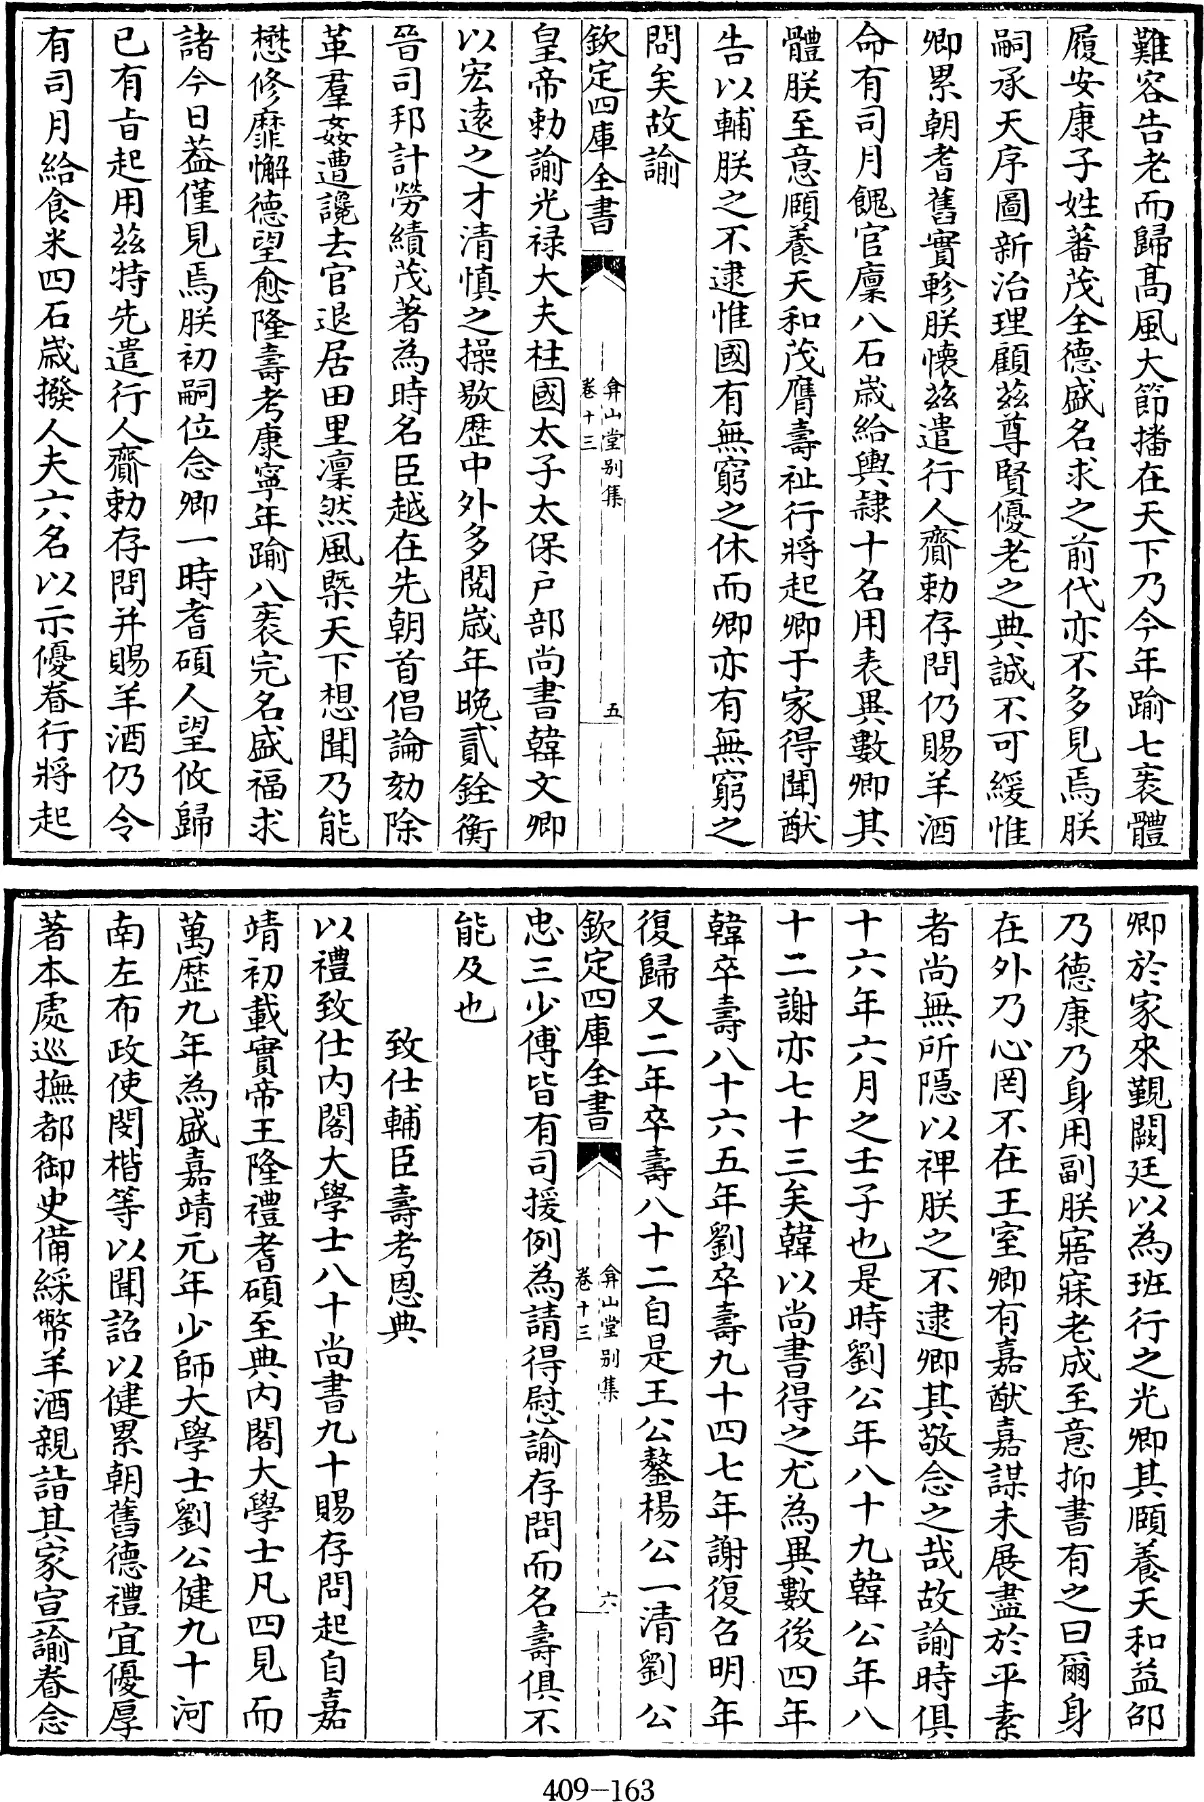 難容告老而歸高風大節播在天下乃今年踰七袠體
履安康子姓蕃茂全德盛名求之前代亦不多見焉朕
嗣承天序圖新治理顧兹尊賢優老之典誠不可緩惟
卿累朝耆舊實軫朕懷兹遣行人齎勅存問仍賜羊酒
命有司月餽官廩八石歳給輿隷十名用表異數卿其
體朕至意頤養天和茂膺壽祉行將起卿于家得聞猷
告以輔朕之不逮惟國有無窮之休而卿亦有無窮之
問矣故諭
欽定四庫全書
弇山堂别集
卷十三
五
皇帝勅諭光禄大夫柱國太子太保戸部尚書韓文卿
以宏遠之才清慎之操敭歴中外多閲歳年晩貳銓衡
晉司邦計勞績茂著為時名臣越在先朝首倡論劾除
革羣姦遭讒去官退居田里凜然風槩天下想聞乃能
懋修靡懈德望愈隆壽考康寧年踰八袠完名盛福求
諸今日葢僅見焉朕初嗣位念卿一時耆碩人望攸歸
已有㫖起用兹特先遣行人齎勅存問并賜羊酒仍令
有司月給食米四石歳撥人夫六名以示優眷行將起
卿於家來覲闕廷以為班行之光卿其頤養天和益卲
乃德康乃身用副朕寤寐老成至意抑書有之曰爾身
在外乃心罔不在王室卿有嘉猷嘉謀未展盡於平素
者尚無所隱以裨朕之不逮卿其敬念之哉故諭時俱
十六年六月之壬子也是時劉公年八十九韓公年八
十二謝亦七十三矣韓以尚書得之尤為異數後四年
韓卒壽八十六五年劉卒壽九十四七年謝復召明年
復歸又二年卒壽八十二自是王公鏊楊公一清劉公
欽定四庫全書
弇山堂别集
卷十三
六
忠三少傅皆有司援例為請得慰諭存問而名壽俱不
能及也
致仕輔臣壽考恩典
以禮致仕内閣大學士八十尚書九十賜存問起自嘉
靖初載實帝王隆禮耆碩至典内閣大學士凡四見而
萬歴九年為盛嘉靖元年少師大學士劉公健九十河
南左布政使閔楷等以聞詔以健累朝舊德禮宜優厚
著本處巡撫都御史備綵幣羊酒親詣其家宣諭眷念
409-163